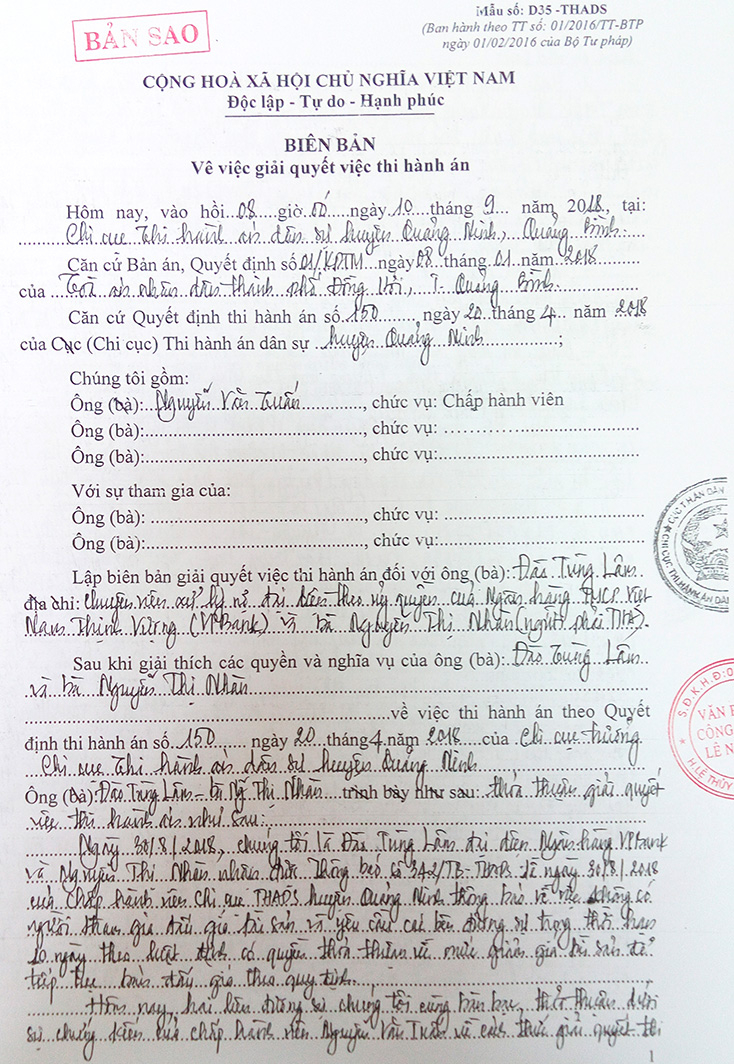 BẢN SAO
Mẫu số: D35 -THADS
(Ban hành theo TT số: 01/2016/TT-BTP
ngày 01/02/2016 của Bộ Tư pháp)
CỘNG HOÀ XÃ HỘI CHỦ NGHĨA VIỆT NAM
Độc lập - Tự do - Hạnh phúc
BIÊN BẢN
Về việc giải quyết việc thi hành án
Hôm nay, vào hồi 08 giờ 00 ngày 10 tháng 9 năm 2018, tại:
Chi cục Thi hành án dân sự huyện Quảng Ninh, Quảng Bình.
Căn cứ Bản án, Quyết định số 01/KDTM ngày 08 tháng 01 năm 2018
của Toà án nhân dân thành phố Đồng Hới, T. Quảng Bình.
Căn cứ Quyết định thi hành án số 150, ngày 20 tháng 4 năm 2018
của Cục (Chi cục) Thi hành án dân sự huyện Quảng Ninh;
Chúng tôi gồm:
Ông (bà): Nguyễn Văn Tuấn, chức vụ: Chấp hành viên
Ông (bà):, chức vụ:
Ông (bà):, chức vụ:
Với sự tham gia của:
Ông (bà):, chức vụ:
Ông (bà):, chức vụ:
Lập biên bản giải quyết việc thi hành án đối với ông (bà): Đào Tùng Lâm
địa chỉ: chuyên viên xử lý nợ đại diện theo uỷ quyền của Ngân hàng TMCP Việt
Nam Thịnh Vượng (VPBank) và bà Nguyễn Thị Nhàn (người phải THA).
Sau khi giải thích các quyền và nghĩa vụ của ông (bà): Đào Tùng Lâm
và bà Nguyễn Thị Nhàn
về việc thi hành án theo Quyết
định thi hành án số 150 ngày 20 tháng 4 năm 2018 của Chi cục trưởng
Chi cục Thi hành án dân sự huyện Quảng Ninh
Ông (bà): Đào Tùng Lâm - bà Ng Thị Nhàn trình bày như sau: thỏa thuận giải quyết
việc thi hành án như sau:
Ngày 30/8/2018, chúng tôi là Đào Tùng Lâm đại diện Ngân hàng VPBank
và Nguyễn Thị Nhàn nhận được Thông báo số 342/TB-THADS đề ngày 30/8/2018
của Chấp hành viên Chi cục THADS huyện Quảng Ninh thông báo về việc không có
người tham gia đấu giá tài sản và yêu cầu các bên đương sự trong thời hạn
10 ngày theo luật định có quyền thỏa thuận về mức giảm giá tài sản để
tiếp tục bán đấu giá theo quy định.
Hôm nay, hai bên đương sự chúng tôi cùng bàn bạc, thỏa thuận dưới
sự chứng kiến của chấp hành viên Nguyễn Văn Tuấn về cách thức giải quyết thi
CỤC T.H.ÁN DÂN
CHI CỤC THI HÀNH ÁN DÂN
S.Đ.K.H.Đ:0
VĂN P
CÔNG
LÊ N
H.LỆ THỦY